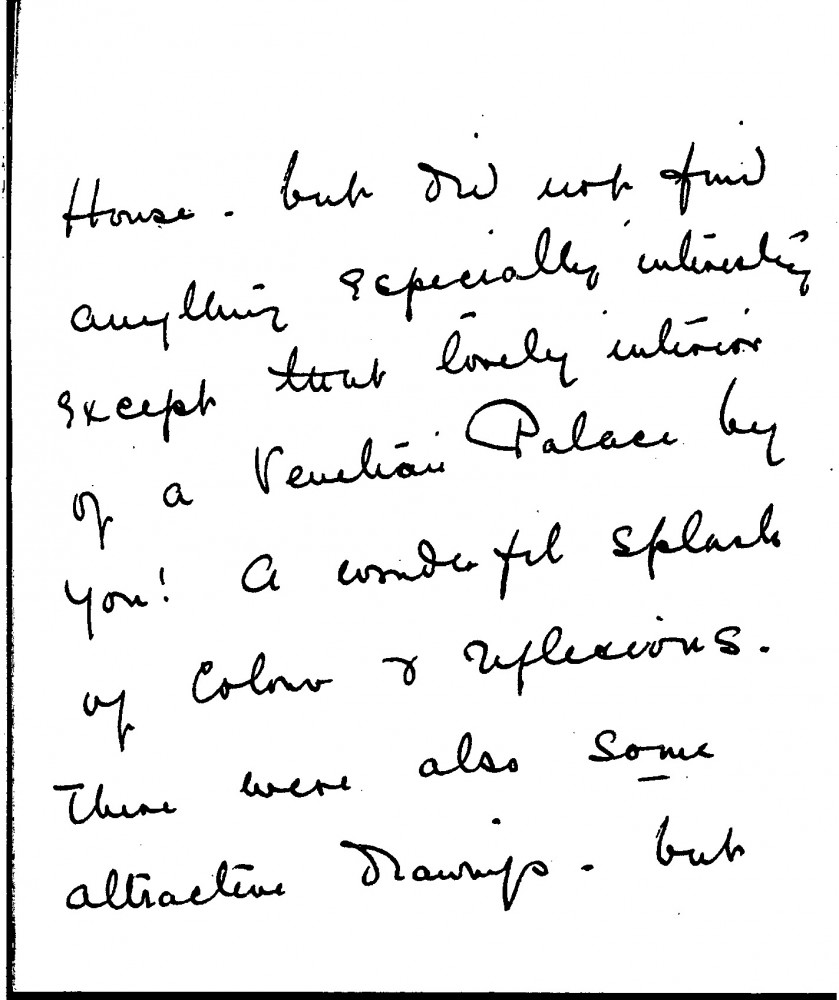 House - but did not find
anything especially interesting
except that lovely interior
of a Venetian Palace by
you! A wonderful splash
of Colour & reflexions.
There were also some
attractive drawings - but